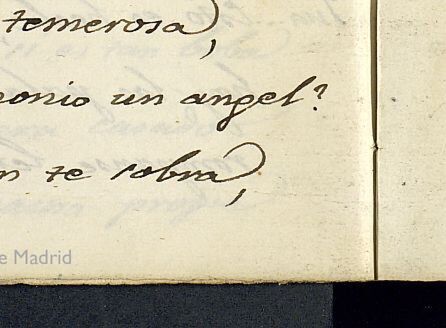 temerosa,
onio un angel?
n te sobra,
e Madrid